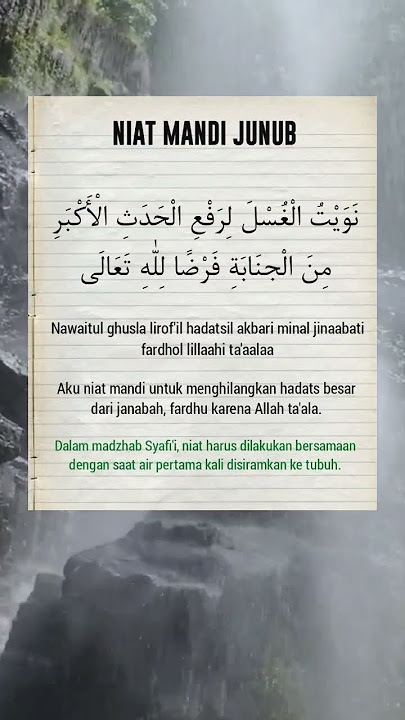 NIAT MANDI JUNUB
نَوَيْتُ الْغُسْلَ لِرَفْعِ الْحَدَثِ الْأَكْبَرِ
مِنَ الْجَنَابَةِ فَرْضًا لِلّٰهِ تَعَالَى
Nawaitul ghusla lirof'il hadatsil akbari minal jinaabati
fardhol lillaahi ta'aalaa
Aku niat mandi untuk menghilangkan hadats besar
dari janabah, fardhu karena Allah ta'ala.
Dalam madzhab Syafi'i, niat harus dilakukan bersamaan
dengan saat air pertama kali disiramkan ke tubuh.